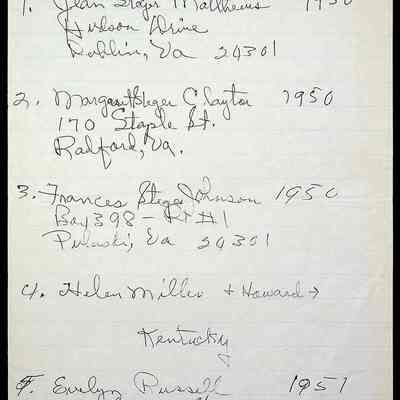 1. Jean Steger Matthews 1950
Hudson Drive
Dublin, Va 24301
2. Margaret Steger Clayton 1950
170 Staple St.
Radford, Va.
3. Frances Steger Johnson 1950
Box 398 - Rt #1
Pulaski, Va 24301
4. Helen Miller + Howard →
Kentucky
5. Evelyn Russell 1951